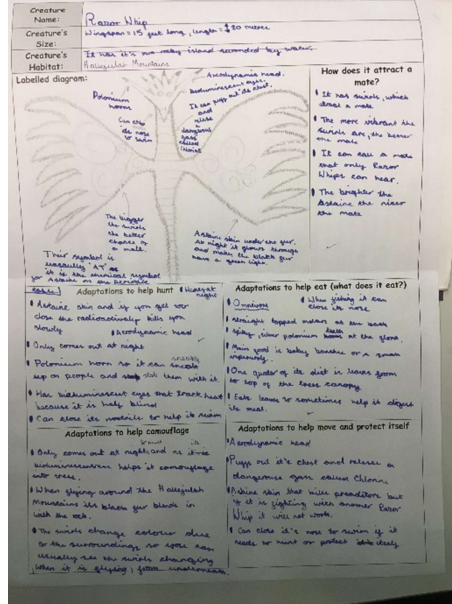 Creature Name: Razor Whip
Creature's Size: Wingspan = 15 feet long, length = 20 metres
Creature's Habitat: It has it's own rocky island surrounded by water.
Hallejulah Mountains
Labelled diagram:
Polonium horns
Can close its nose to swim
Aerodynamic head.
bioluminescent eyes.
It can puff out its chest.
and
dangerous gas called Chlorine
The bigger the swirls the better chance of a mate.
Their symbol is usually "At" as it is the chemical symbol for Astatine on the periodic table.
Astatine skin under the fur. At night it glows through and makes the black fur have a green light.
How does it attract a mate?
It has swirls, which attract a mate
The more vibrant the swirls are, the better the mate
It can call a mate that only Razor Whips can hear.
The brighter the Astatine the nicer the mate
Adaptations to help hunt
Hides at night
Astatine skin and if you get too close the radioactivity kills you slowly
Aerodynamic head
Only comes out at night
Polonium horn so it can sneak up on people and stab them with it.
Has bioluminescent eyes that track heat because it is half blind
Can close its nostrils to help it swim
Adaptations to help eat (what does it eat?)
Omnivore
When fishing it can close its nose.
straight topped molars at the back
spikey, silver polonium teeth at the front.
Main food is baby banshee or a small
One quarter of its diet is leaves from the top of the trees canopy
Eats leaves to sometimes help it digest its meal.
Adaptations to help camouflage
Only comes out at night and its bioluminescence helps it camouflage into trees.
When flying around the Hallejulah Mountains its black fur blends in with the rock.
The swirls change colour due to the surroundings so you can usually see the swirls changing when it is flying, from underneath.
Adaptations to help move and protect itself
Aerodynamic head
Puffs out it's chest and releases a dangerous gas called Chlorine
Astatine skin that kills preaditors but if it is fighting with another Razor Whip it will not work.
Can close it's nose to swim if it needs to hunt or protect itself